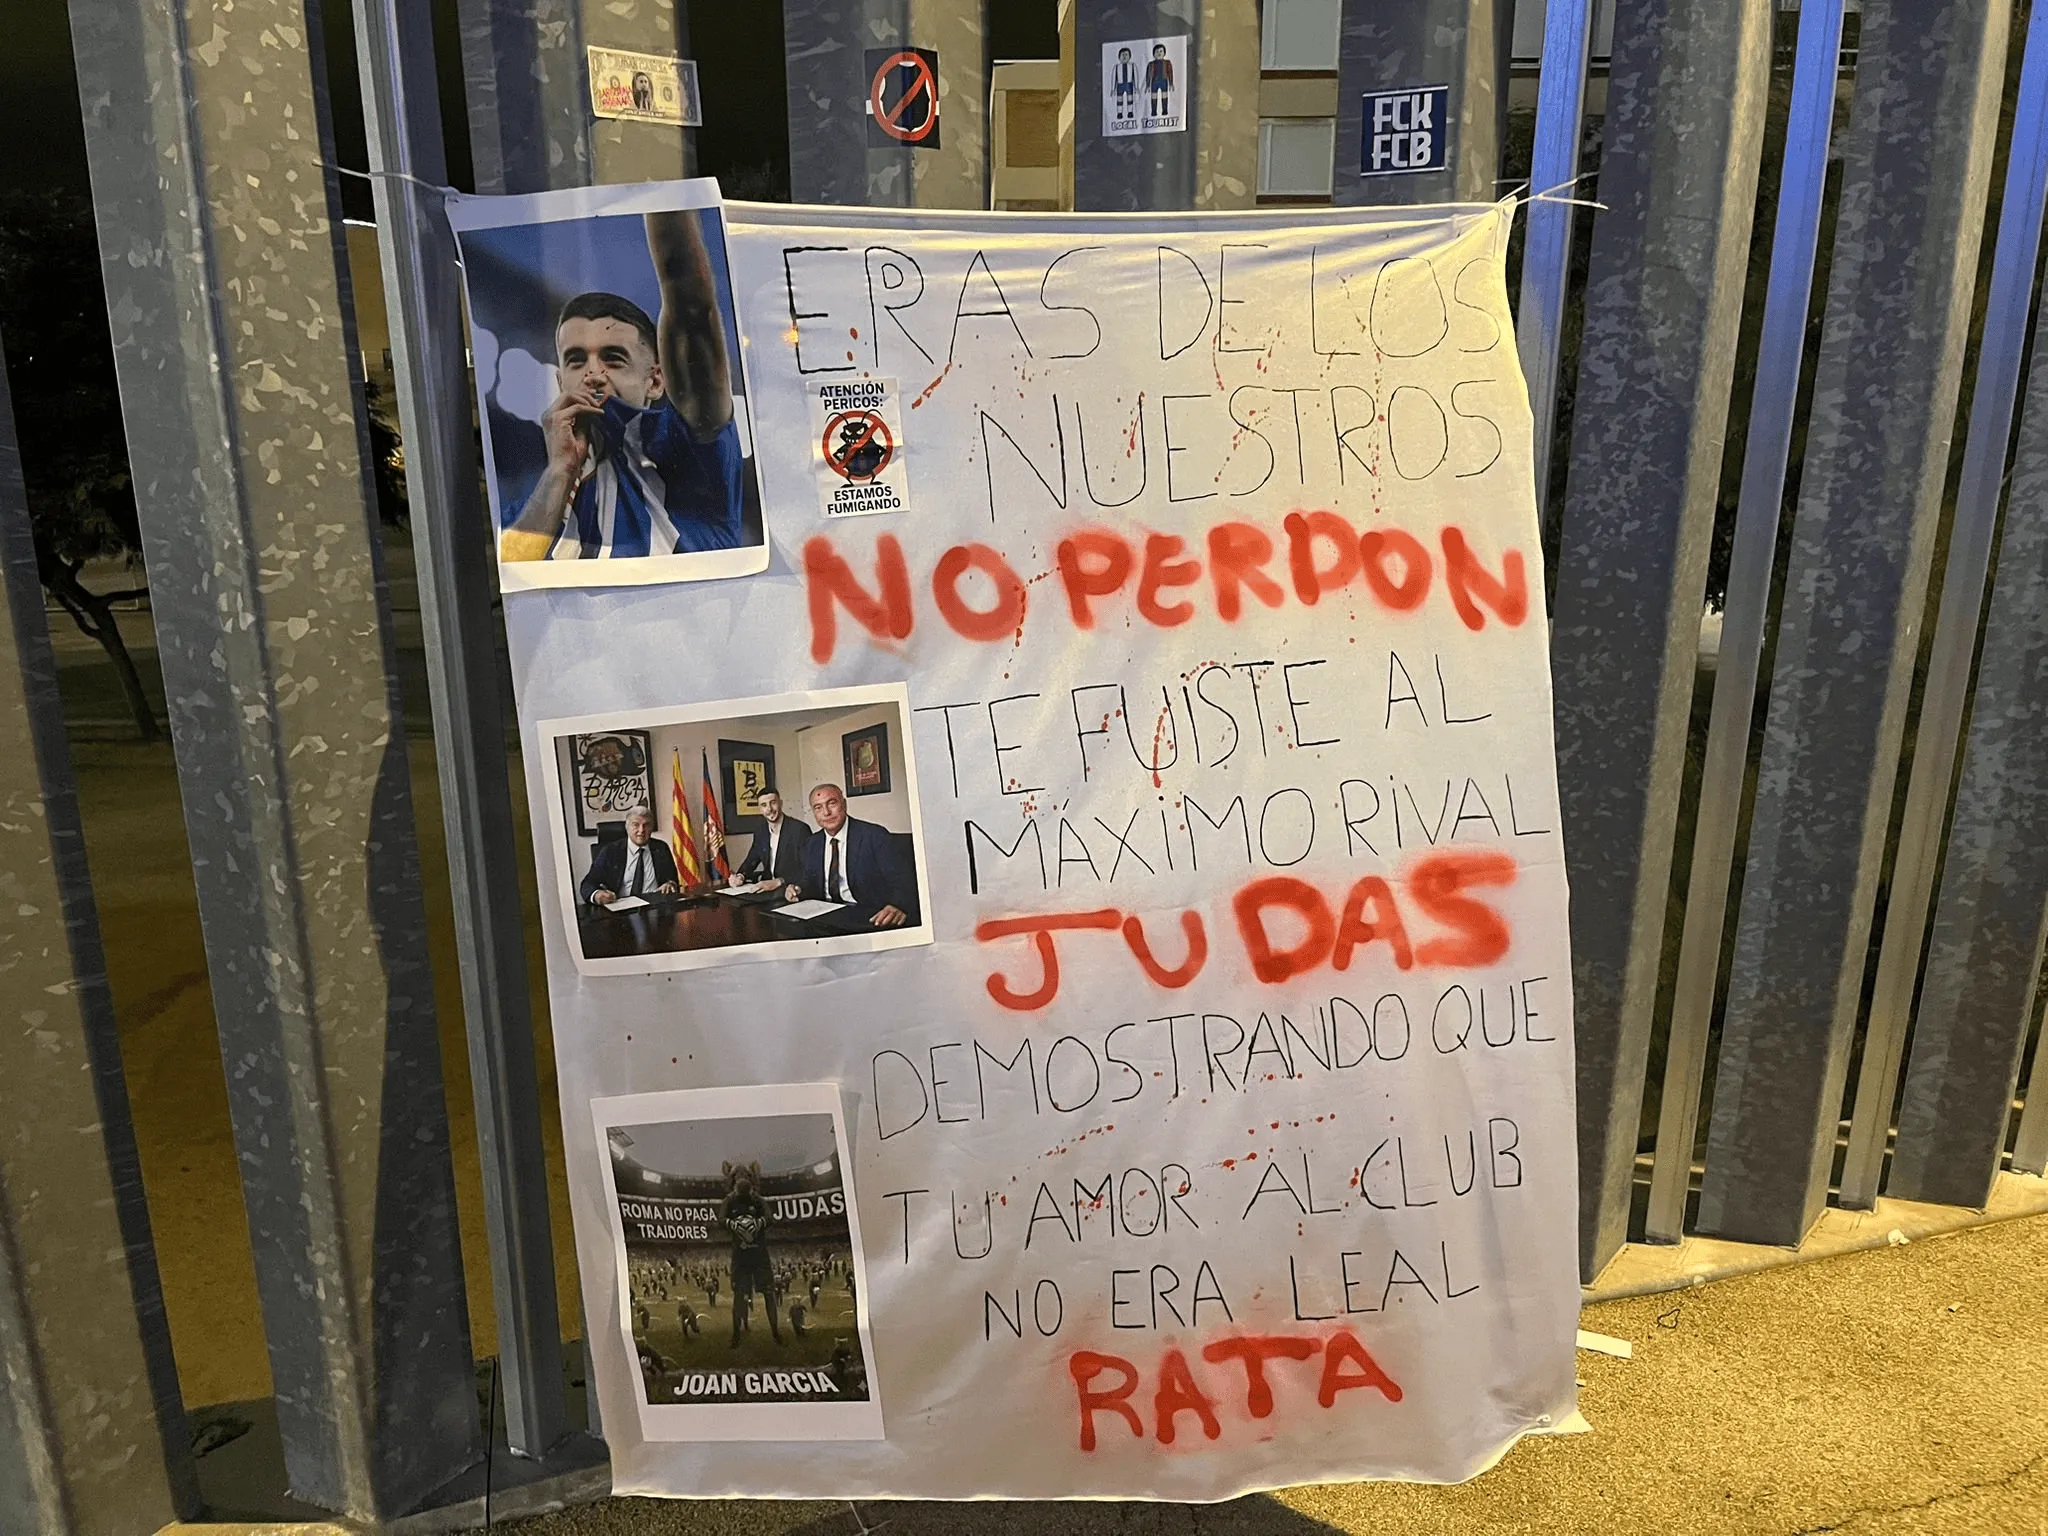 LOCAL TOURIST
FCK
FCB
ERAS DE LOS
NUESTROS
ATENCIÓN
PERICOS:
ESTAMOS
FUMIGANDO
NO PERDON
TE FUiSTE AL
MÁXiMO RiVAL
BARÇA
JUDAS
DEMOSTRANDO QUE
TU AMOR AL CLUB
NO ERA LEAL
RATA
ROMA NO PAGA
TRAIDORES
JUDAS
JOAN GARCIA